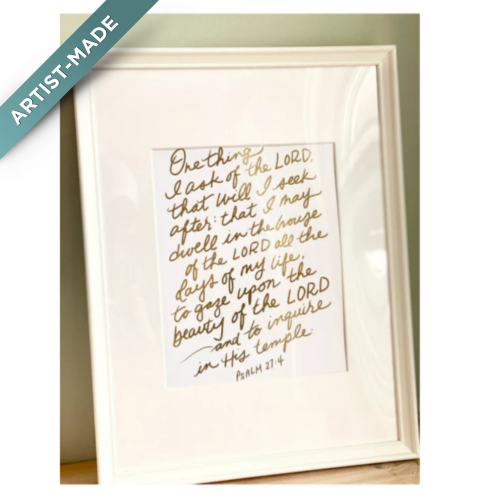 ARTIST-MADE
One thing
I ask of the LORD,
that will I seek
after: that I may
dwell in the house
of the LORD all the
days of my life,
to gaze upon the
beauty of the LORD
and to inquire
in His temple.
PSALM 27:4